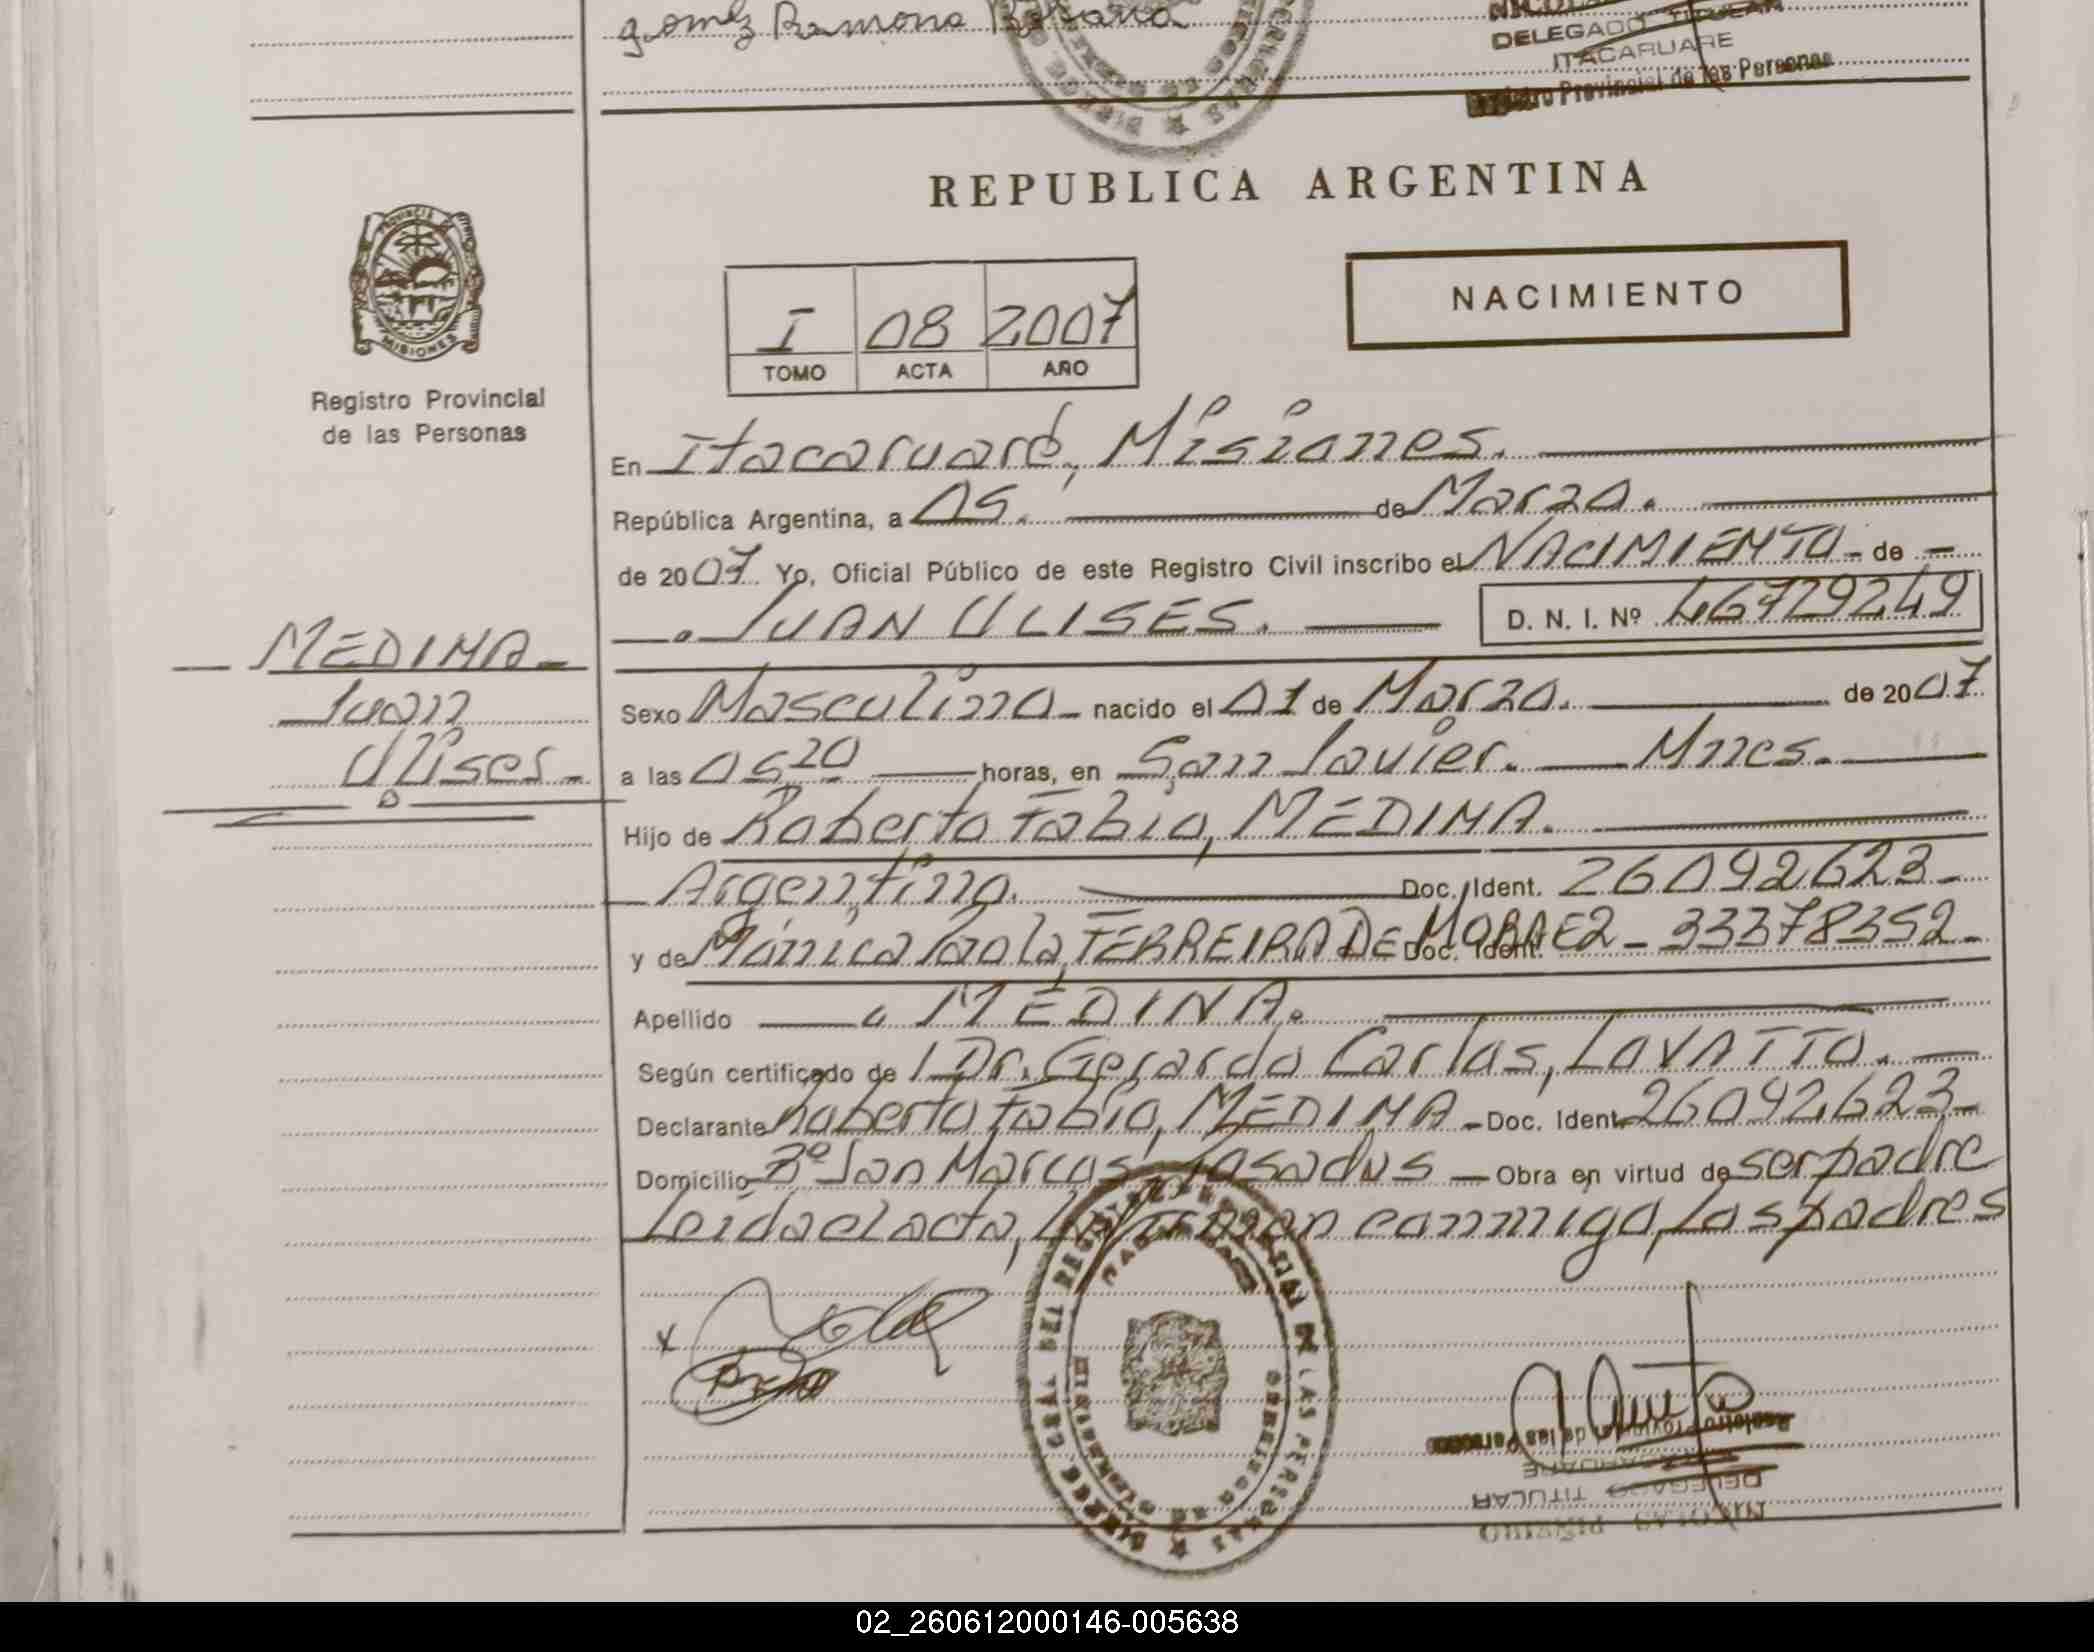 gomez Ramona
DELEGADO TITULAR
ITACARUARE
Registro Provincial de las Personas
REPUBLICA ARGENTINA
NACIMIENTO
I 08 2007
TOMO ACTA AÑO
PROVINCIA DE
MISIONES
Registro Provincial
de las Personas
MEDINA
Juan
Ulises
En Itacaruaré, Misiones.
República Argentina, a 05. de Marzo.
de 2007 Yo, Oficial Público de este Registro Civil inscribo el NACIMIENTO de
JUAN ULISES. D. N. I. Nº 46729249
Sexo Masculino nacido el 01 de Marzo. de 2007
a las 05 20 horas, en San Javier. Mnes.
Hijo de Roberto Fabio, MEDINA.
Argentino. Doc. Ident. 26092623
y de Mónica Paola, FERREIRA DE MORAEZ Doc. Ident. 33378352
Apellido MEDINA.
Según certificado de l Dr. Gerardo Carlos, LOVATTO.
Declarante Roberto Fabio, MEDINA Doc. Ident. 26092623
Domicilio Bº San Marcos Posadas Obra en virtud de ser padre
Leida el acta, la firman conmigo, los padres
Registro Provincial de las Personas
ITACARUARE
DELEGADO TITULAR
NICOLAS PIÑEIRO
02_260612000146-005638